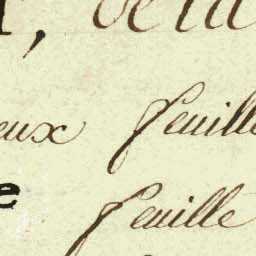 , de la
eux feuille
e feuille